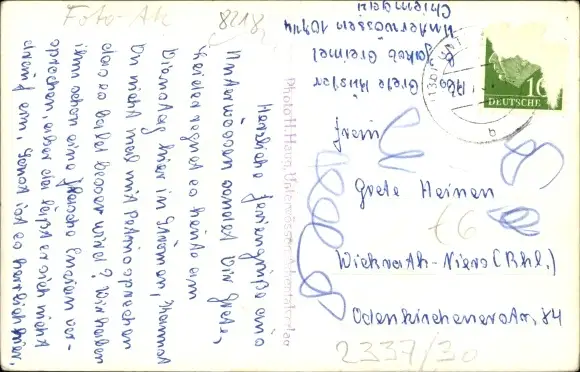 Foto-AK
8218
Herzliche Feriengrüße aus
Unterwössen sendet Dir Grete,
Leider regnet es heute am
Dienstag hier in Strömen, kannst
Du nicht mal mit Petrus sprechen
das es bald besser wird? Wir haben
ihm schon eine Flasche Enzian ver-
sprochen, aber da läßt er sich nicht
drauf ein. Sonst ist es herrlich hier.
Photo H. Haug, Unterwössen
Abs. Grete
b. Jakob Greimel
Unterwössen
Chiemgau
10
DEUTSCHE
Frein
Grete Heinen
Wickrath-Niers (Rhl.)
Odenkirchenerstr. 84
€6
2337/30